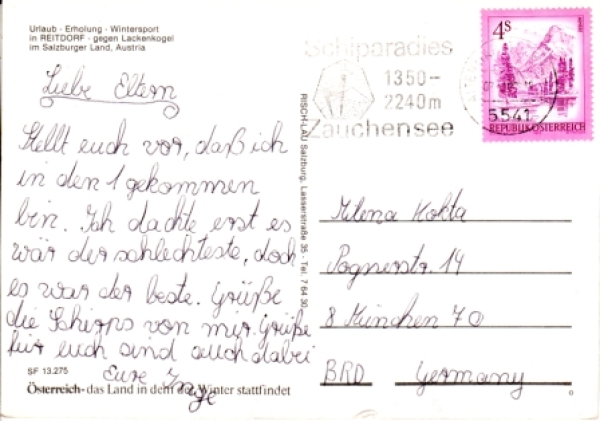 Urlaub - Erholung - Wintersport
in REITDORF - gegen Lackenkogel
im Salzburger Land, Austria
Liebe Eltern
Stellt euch vor, daß ich
in den 1 gekommen
bin. Ich dachte erst es
wär der schlechteste, doch
es war der beste. Grüße
die Schirps von mir. Grüße
für euch sind auch dabei
Eure Inge
SF 13.275
Österreich - das Land in dem der Winter stattfindet
RISCH-LAU Salzburg, Lasserstraße 35 - Tel. 7 64 30
Schiparadies
1350-
2240m
Zauchensee
4S
5541
REPUBLIK ÖSTERREICH
Milena Kokta
Pognerstr. 14
8 München 70
BRD Germany